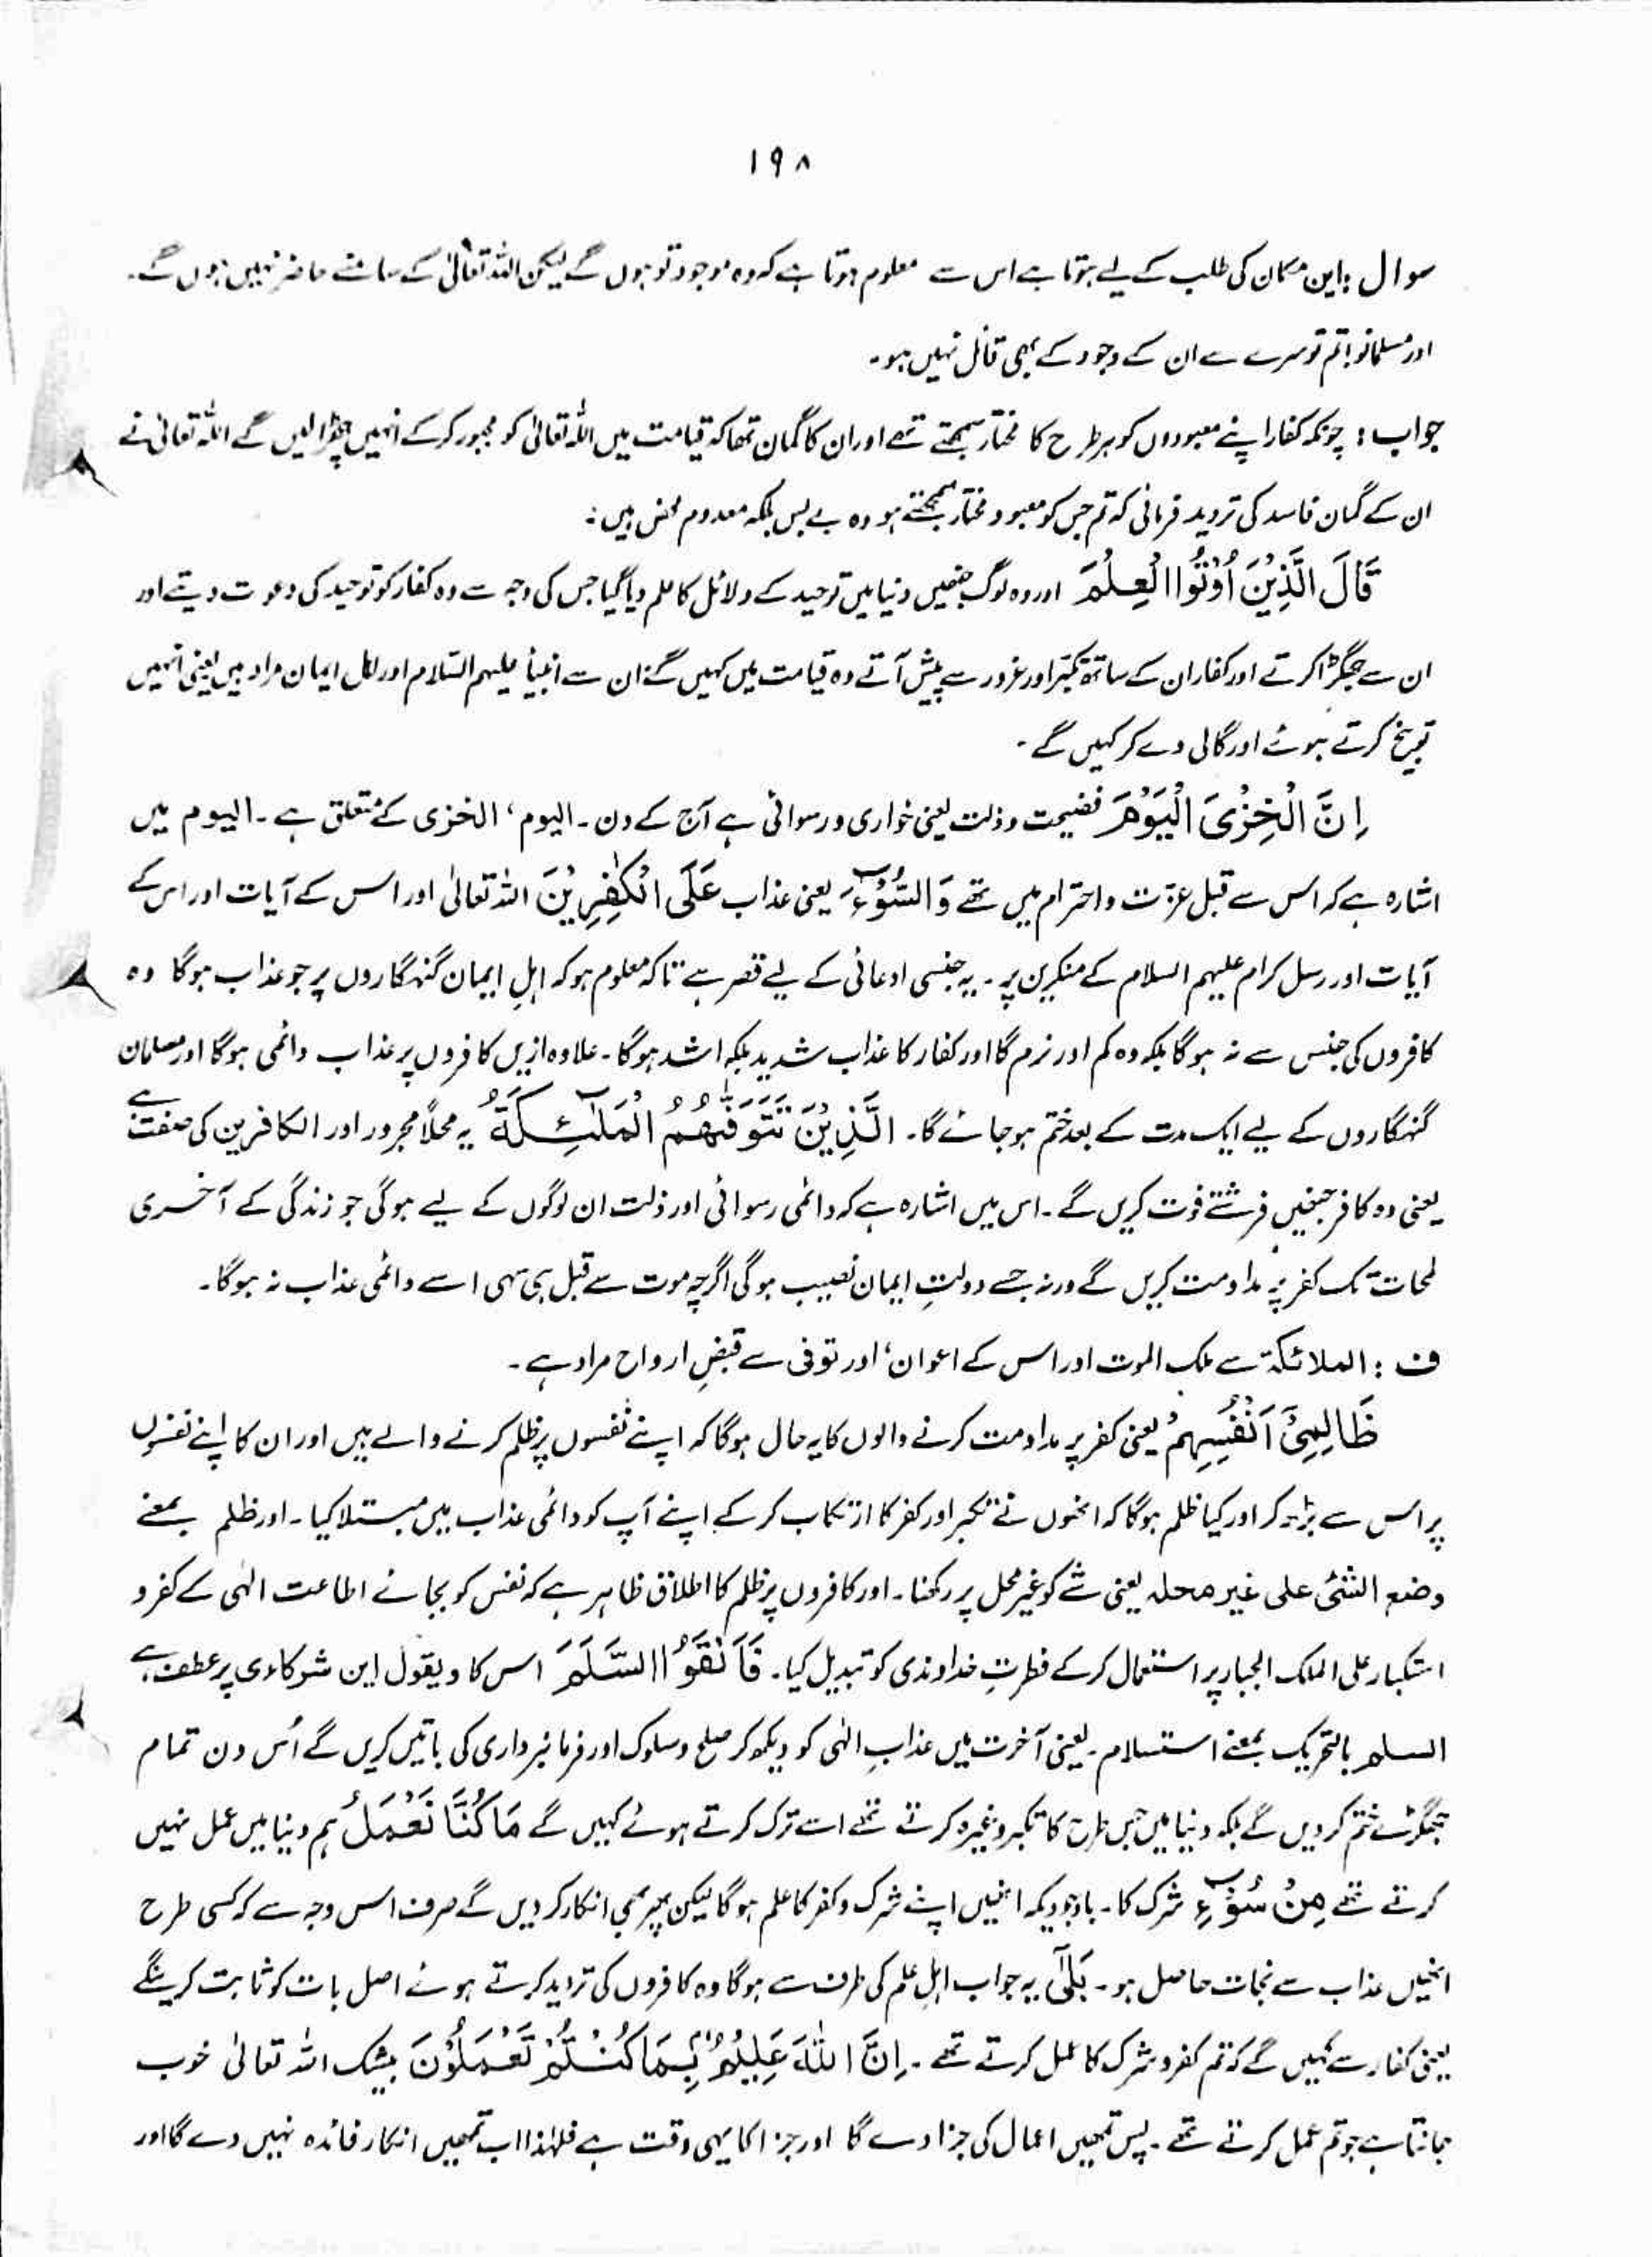 ۱۹۸
سوال : این مکان کی طلب کے لیے ہوتا ہے اس سے معلوم ہوتا ہے کہ وہ موجود تو ہوں گے لیکن اللہ تعالیٰ کے سامنے حاضر نہیں ہوں گے۔
اور مسلمانو ! تم تو سرے سے ان کے وجود کے بھی قائل نہیں ہو۔
جواب : چونکہ کفار اپنے معبودوں کو ہر طرح کا مختار سمجھتے تھے اور ان کا گمان تھا کہ قیامت میں اللہ تعالیٰ کو مجبور کر کے انہیں چھڑا لیں گے اللہ تعالیٰ نے
ان کے گمان فاسد کی تردید فرمائی کہ تم جس کو معبود مختار سمجھتے ہو وہ بے بس بلکہ معدوم محض ہیں :
قَالَ الَّذِیْنَ اُوْتُوا الْعِلْمَ اور وہ لوگ جنھیں دنیا میں توحید کے دلائل کا علم دیا گیا جس کی وجہ سے وہ کفار کو توحید کی دعوت دیتے اور
ان سے جھگڑا کرتے اور کفار ان کے ساتھ تکبّر اور غرور سے پیش آتے وہ قیامت میں کہیں گے ان سے انبیأ علیہم السّلام اور اہل ایمان مراد ہیں یعنی انہیں
توبیخ کرتے ہوئے اور گالی دے کر کہیں گے ۔
اِنَّ الْخِزْیَ الْیَوْمَ فضیحت و ذلت یعنی خواری و رسوائی ہے آج کے دن ۔ الیوم ، الخزی کے متعلق ہے ۔ الیوم میں
اشارہ ہے کہ اس سے قبل عزّت و احترام میں تھے وَالسُّوْٓءَ یعنی عذاب عَلَی الْکٰفِرِیْنَ اللہ تعالیٰ اور اس کے آیات اور اس کے
آیات اور رسل کرام علیہم السلام کے منکرین پر ۔ یہ جنسی ادعائی کے لیے قصر ہے تاکہ معلوم ہو کہ اہلِ ایمان گنہگاروں پر جو عذاب ہوگا وہ
کافروں کی جنس سے نہ ہوگا بلکہ وہ کم اور نرم گا اور کفار کا عذاب شدید بلکہ اشد ہوگا ۔ علاوہ ازیں کافروں پر عذاب دائمی ہوگا اور مسلمان
گنہگاروں کے لیے ایک مدت کے بعد ختم ہو جائے گا ۔ الَّذِیْنَ تَتَوَفّٰىهُمُ الْمَلٰٓئِکَةُ یہ محلاً مجرور اور الکافرین کی صفت ہے
یعنی وہ کافر جنھیں فرشتے فوت کریں گے ۔ اس میں اشارہ ہے کہ دائمی رسوائی اور ذلت ان لوگوں کے لیے ہوگی جو زندگی کے آخری
لمحات تک کفر پر مداومت کریں گے ورنہ جسے دولتِ ایمان نصیب ہوگی اگرچہ موت سے قبل ہی سہی اسے دائمی عذاب نہ ہوگا ۔
ف : الملائکۃ سے ملک الموت اور اس کے اعوان ، اور توفی سے قبضِ ارواح مراد ہے ۔
ظَالِمِیْٓ اَنْفُسِہِمْ یعنی کفر پر مداومت کرنے والوں کا یہ حال ہوگا کہ اپنے نفسوں پر ظلم کرنے والے ہیں اور ان کا اپنے نفسوں
پر اس سے بڑھ کر اور کیا ظلم ہوگا کہ انھوں نے تکبر اور کفر کا ارتکاب کر کے اپنے آپ کو دائمی عذاب میں مبتلا کیا ۔ اور ظلم بمعنے
وضع الشئ علی غیر محلہ یعنی شے کو غیر محل پر رکھنا ۔ اور کافروں پر ظلم کا اطلاق ظاہر ہے کہ نفس کو بجائے اطاعت الٰہی کے کفر و
استکبار علی الملک الجبار پر استعمال کر کے فطرتِ خداوندی کو تبدیل کیا ۔ فَاَلْقَوُا السَّلَمَ اس کا ویقول این شرکاءی پر عطف ہے
السلم بالتحریک بمعنے استسلام ۔ یعنی آخرت میں عذابِ الٰہی کو دیکھ کر صلح و سلوک اور فرمانبرداری کی باتیں کریں گے اُس دن تمام
جھگڑے ختم کر دیں گے بلکہ دنیا میں جس طرح کا تکبر وغیرہ کرتے تھے اسے ترک کرتے ہوئے کہیں گے مَا کُنَّا نَعْمَلُ ہم دنیا میں عمل نہیں
کرتے تھے مِنْ سُوْٓءٍ شرک کا ۔ باوجودیکہ انھیں اپنے شرک و کفر کا علم ہوگا لیکن پھر بھی انکار کر دیں گے صرف اس وجہ سے کہ کسی طرح
انھیں عذاب سے نجات حاصل ہو ۔ بَلٰٓی یہ جواب اہلِ علم کی طرف سے ہوگا وہ کافروں کی تردید کرتے ہوئے اصل بات کو ثابت کرینگے
یعنی کفار سے کہیں گے کہ تم کفر و شرک کا عمل کرتے تھے ۔ اِنَّ اللّٰہَ عَلِیْمٌۢ بِمَا کُنْتُمْ تَعْمَلُوْنَ بیشک اللہ تعالیٰ خوب
جانتا ہے جو تم عمل کرتے تھے ۔ پس تمھیں اعمال کی جزا دے گا اور جزا کا یہی وقت ہے فلہٰذا اب تمھیں انکار فائدہ نہیں دے گا اور